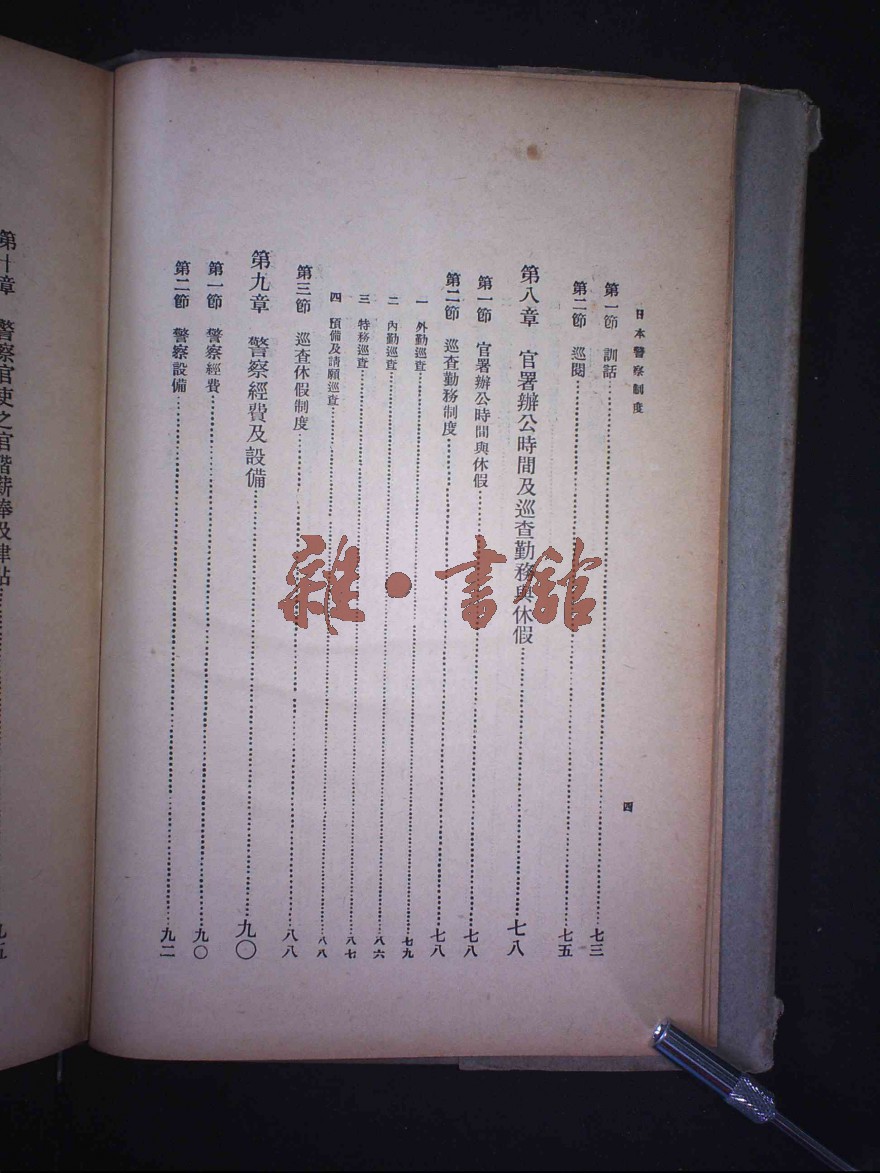 日本警察制度
四
第一節 訓話…………七三
第二節 巡閱…………七五
第八章 官署辦公時間及巡查勤務與休假…………七八
第一節 官署辦公時間與休假…………七八
第二節 巡查勤務制度…………七八
一 外勤巡查…………七九
二 內勤巡查…………八六
三 特務巡查…………八七
四 預備及請願巡查…………八八
第三節 巡查休假制度…………八八
第九章 警察經費及設備…………九〇
第一節 警察經費…………九〇
第二節 警察設備…………九二
第十章 警察官吏之官階薪俸及津貼…………九五
雜·書館